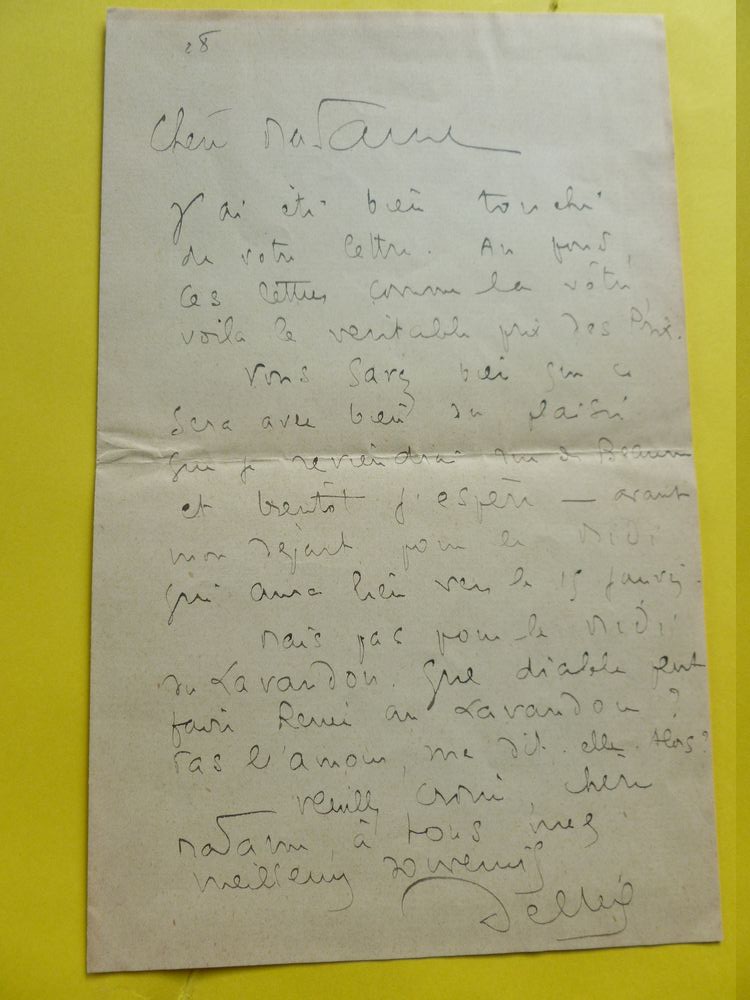 28
Chère Madame
J'ai été bien touché
de votre lettre. Au fond,
ces lettres comme la vôtre,
voilà le véritable prix des Prix.
Vous savez bien que ce
sera avec bien du plaisir
que je reviendrai rue de Beaune
et bientôt j'espère — avant
mon départ pour le Midi
qui aura lieu vers le 15 janvier.
Mais pas pour le Midi
du Lavandou. Que diable peut
faire Renée au Lavandou ?
Pas l'amour, me dit-elle. Alors ?
Veuillez croire, chère
Madame, à tous mes
meilleurs souvenirs